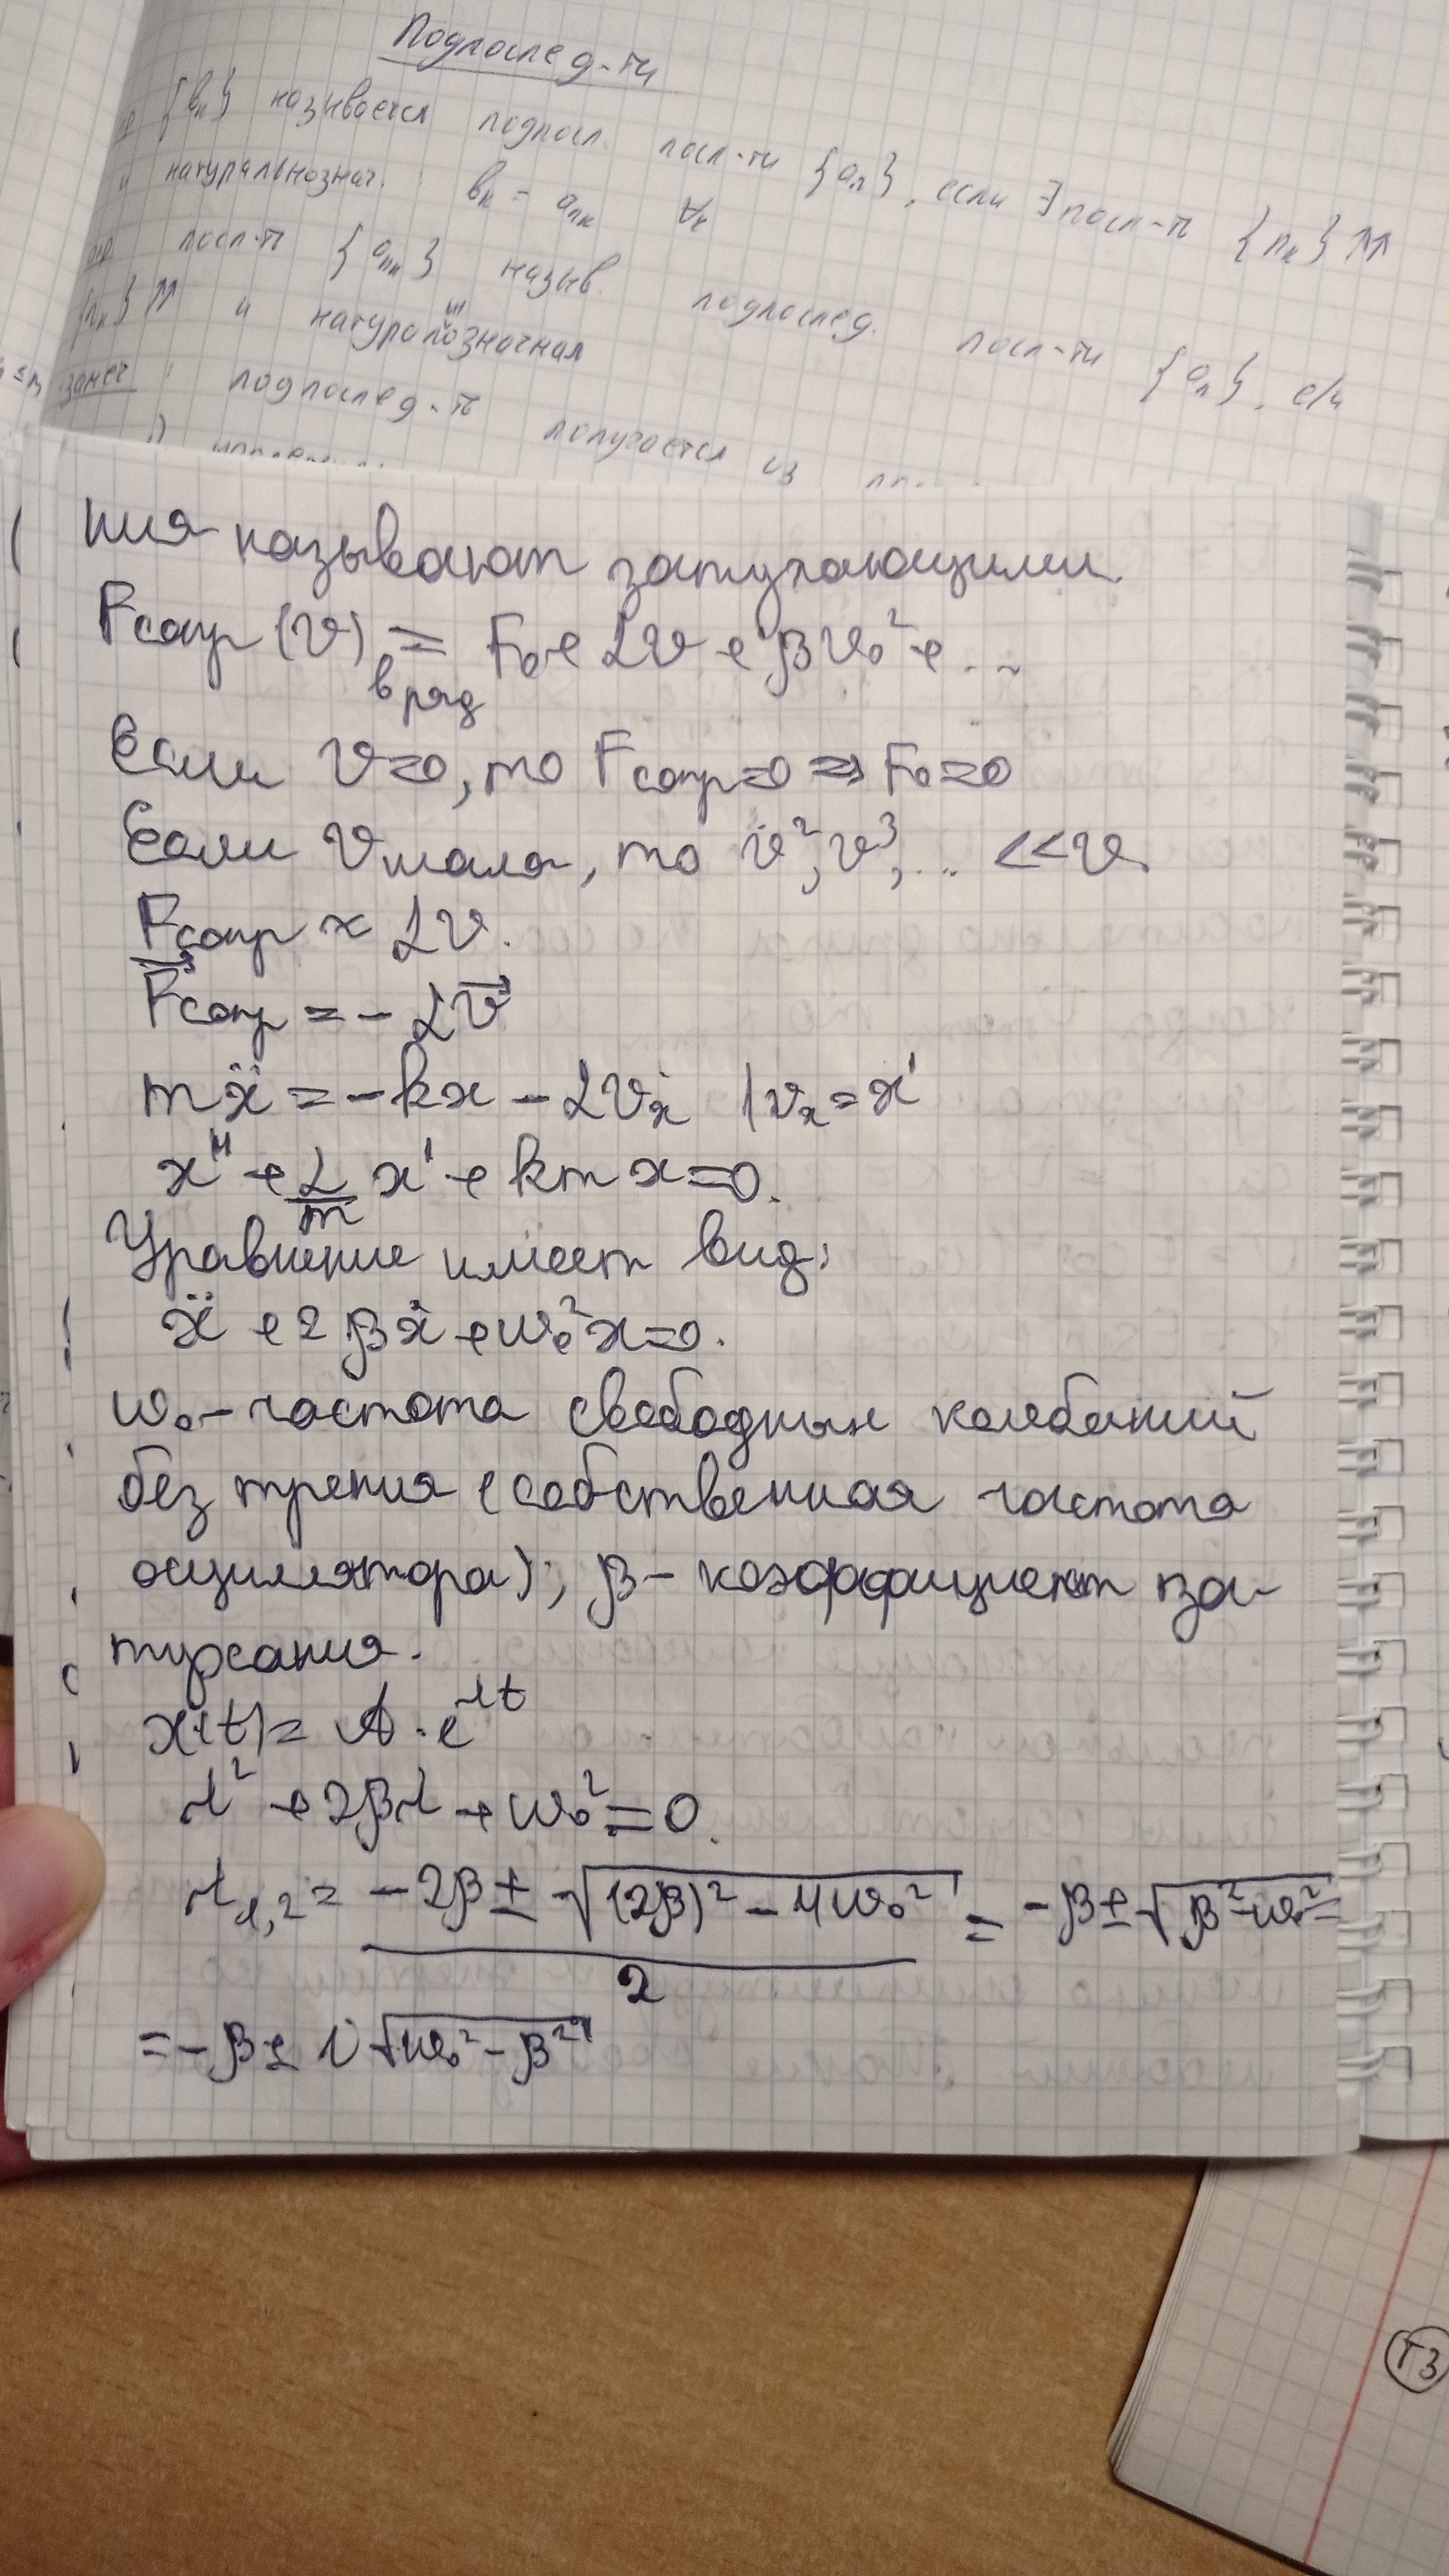 Подпослед-ти
{bₙ} называется подпосл. посл-ти {aₙ}, если ∃ посл-ть {nₖ} ↑↑
и натуральнознач. : bₖ = aₙₖ ∀k
опр посл-ть {aₙₖ} назыв. подпослед. посл-ти {aₙ}, если
{nₖ} ↑↑ и натуральнозначная
замеч : подпослед-ть получается из
ния называют затухающими.
Fсопр (v) = F₀ + αv + βv₀² + ...
в ряд
Если v=0, то Fсопр=0 ⇒ F₀=0
Если v мала, то v², v³, ... << v.
Fсопр ≈ αv.
F⃗сопр = - αv⃗
mẍ = -kx - αvₓ | vₓ = x'
x'' + α/m x' + km x = 0.
Уравнение имеет вид:
ẍ + 2βẋ + ω₀²x = 0.
ω₀ - частота свободных колебаний
без трения (собственная частота
осциллятора); β - коэффициент за-
тухания.
x(t) = A · e^λt
λ² + 2βλ + ω₀² = 0.
λ₁,₂ = (-2β ± √((2β)² - 4ω₀²)) / 2 = -β ± √(β² - ω₀²) =
= -β ± i √(ω₀² - β²)
Т3